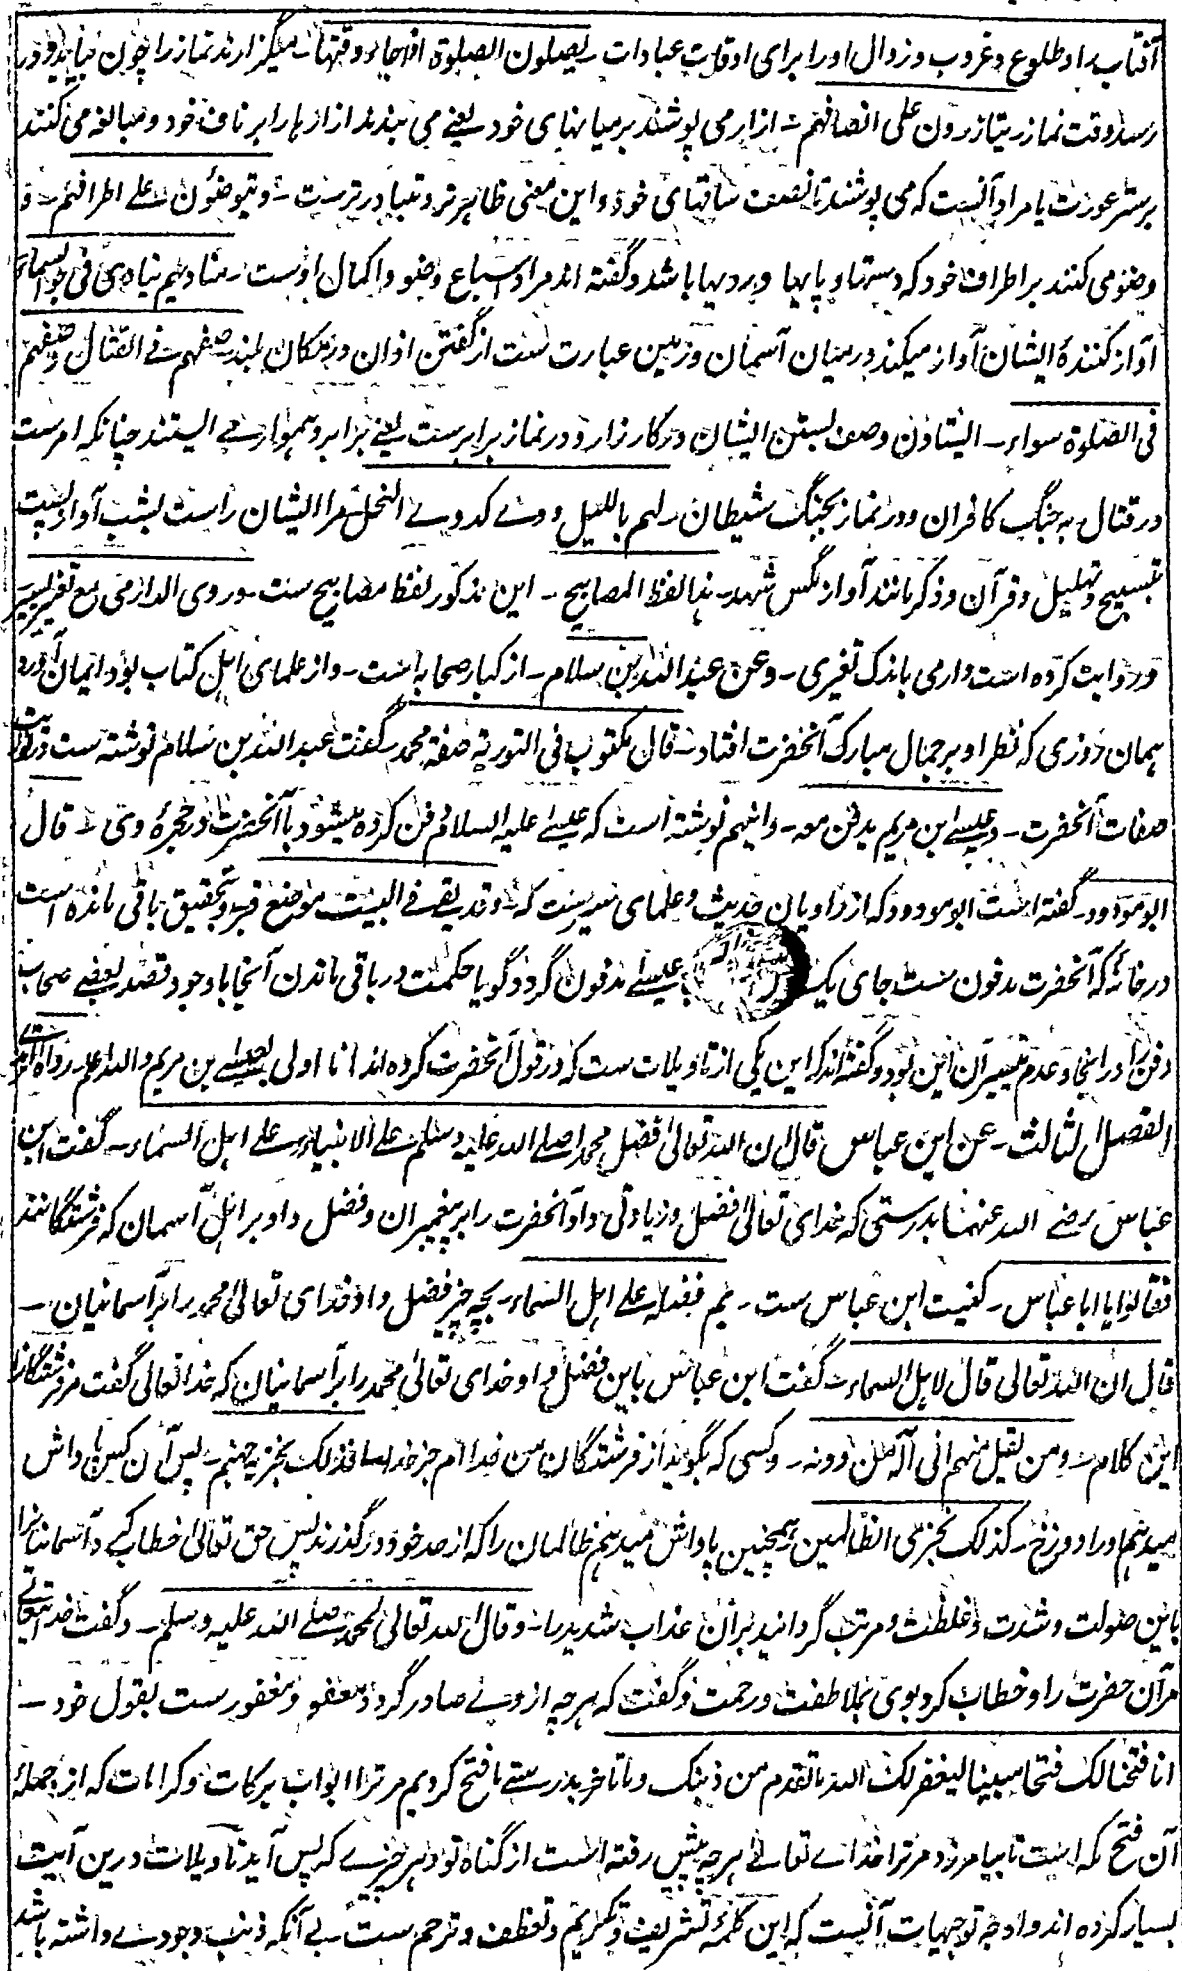 آفتاب را و طلوع و غروب و زوال او را برای اوقات عبادات ـ یصلون الصلوة اذا جاء وقتها ـ میگزارند نماز را چون بیاید و در
رسد وقت نماز ـ یتأزرون علی انصافهم ـ ازار می پوشند بر میانهای خود یعنے می بندند ازارها را بر ناف خود و مبالغه می کنند
بر ستر عورت یا مراد آنست که می پوشند تا نصف ساقهای خود و این معنی ظاهر تر و متبادر ترست ـ و یتوضئون علے اطرافهم ـ و
وضو می کنند بر اطراف خود که دستها و پایها و رویها باشد و گفته اند مراد اسباغ وضو و اکمال اوست ـ منادیهم ینادی فی جو السماء
آواز کنندهٔ ایشان آواز میکند در میان آسمان و زمین عبارت ست از گفتن اذان در مکان بلند ـ صفهم فے القتال و صفهم
فی الصلوة سواء ـ ایستادن و صف بستن ایشان در کارزار و در نماز برابرست یعنے برابر و هموار مے ایستند چنانکه امرست
در قتال به جنگ کافران و در نماز بجنگ شیطان ـ لهم باللیل دوے کدوے النحل مر ایشان راست بشب آواز پست
بتسبیح و تهلیل و قرآن و ذکر مانند آواز مگس شهد ـ هذا لفظ المصابیح ـ این مذکور لفظ مصابیح ست ـ و روی الدارمی مع تغییر یسیر
و روایت کرده است دارمی باندک تغیری ـ و عن عبد الله بن سلام ـ از کبار صحابه است ـ و از علمای اهل کتاب بود ایمان آورد
همان روزی که نظر او بر جمال مبارک آنحضرت افتاد ـ قال مکتوب فی التوریة صفة محمد ـ گفت عبد الله بن سلام نوشته ست در توریت
صفات آنحضرت ـ و عیسے ابن مریم یدفن معه ـ و اینهم نوشته است که عیسے علیه السلام دفن کرده میشود با آنحضرت در حجرهٔ وی ـ قال
ابو مودود ـ گفته است ابو مودود که از راویان حدیث و علمای مدینست که ـ و قد بقے فے البیت موضع قبر و بتحقیق باقی مانده است
در خانهٔ که آنحضرت مدفون ست جای یک عیسے مدفون گردد گویا حکمت در باقی ماندن آنجا باوجود قصد بعضے صحابه
دفن را در اینجا و عدم تیسیر آن این بود و گفته اند که این یکی از تاویلات ست که در قول آنحضرت کرده اند انا اولی بعیسے بن مریم و الله اعلم ـ رواه الترمذی
الفصل الثالث ـ عن ابن عباس قال ان الله تعالیٰ فضل محمدا صلے الله علیه و سلم علے الانبیاء و علے اهل السماء ـ گفت ابن
عباس رضے الله عنهما بدرستی که خدای تعالیٰ فضل و زیادتی داد آنحضرت را بر پیغمبران و فضل داد بر اهل آسمان که فرشتگانند
فقالوا یا ابا عباس ـ کنیت ابن عباس ست ـ بم فضله علے اهل السماء ـ بچه چیز فضل داد خدای تعالیٰ محمد را بر آسمانیان ـ
قال ان الله تعالی قال لاهل السماء ـ گفت ابن عباس باین فضل داد خدای تعالیٰ محمد را بر آسمانیان که خدا تعالی گفت مر فرشتگان را
این کلام ـ و من یقل منهم انی آله من دونه ـ و کسی که بگوید از فرشتگان من خدا ام جز خدا فذلک نجزیه جهنم ـ پس آن کس پاداش
میدهم او را دوزخ ـ کذلک نجزی الظالمین همچنین پاداش میدهم ظالمان را که از حد خود در گذرند پس حق تعالیٰ خطاب کرد آسمانیانرا
باین صولت و شدت و غلظت و مرتب گردانید بران عذاب شدید را ـ و قال الله تعالیٰ لمحمد صلے الله علیه و سلم ـ و گفت خدا تعالے
مر آن حضرت را و خطاب کرد بوی بملاطفت و رحمت و گفت که هر چه از وے صادر گردد معفو و مغفورست بقول خود ـ
انا فتحنا لک فتحا مبینا لیغفر لک الله ما تقدم من ذنبک و ما تاخر بدرستے ما فتح کردیم مر ترا ابواب برکات و کرامات که از جملهٔ
آن فتح مکه است تا بیامرزد مر ترا خداے تعالے هر چه پیش رفته است از گناه تو و هر چیزے که پس آید تاویلات درین آیت
بسیار کرده اند و اوجه توجیهات آنست که این کلمهٔ تشریف و تکریم و تعطف و ترحم ست ـ بے آنکه ذنب وجودے داشته باشد